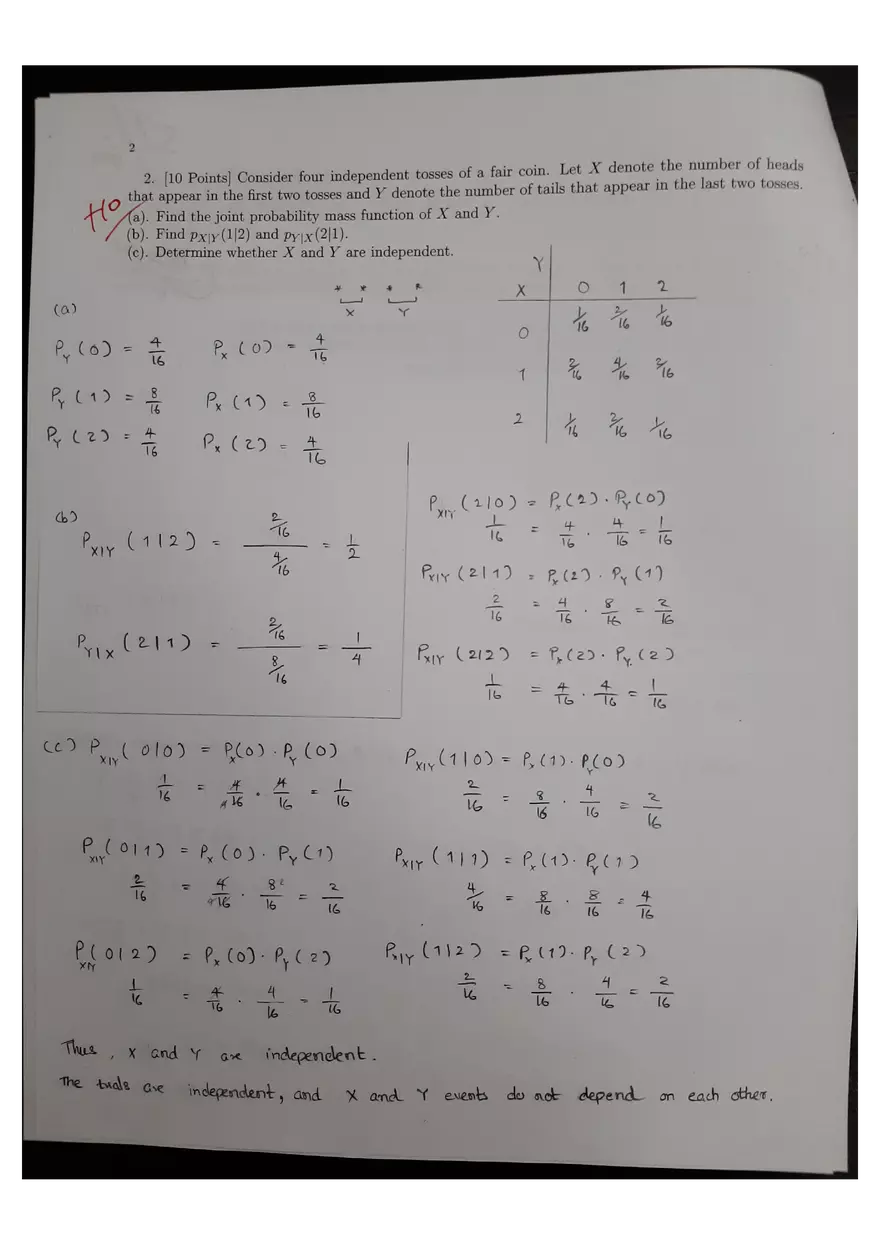 2
2. [10 Points] Consider four independent tosses of a fair coin. Let X denote the number of heads
that appear in the first two tosses and Y denote the number of tails that appear in the last two tosses.
(a). Find the joint probability mass function of X and Y.
(b). Find p_{X|Y}(1|2) and p_{Y|X}(2|1).
(c). Determine whether X and Y are independent.
* * * *
X Y
Y
X 0 1 2
0 1/16 2/16 1/16
1 2/16 4/16 2/16
2 1/16 2/16 1/16
(a)
P_Y (0) = 4/16 P_X (0) = 4/16
P_Y (1) = 8/16 P_X (1) = 8/16
P_Y (2) = 4/16 P_X (2) = 4/16
(b)
P_{X|Y} (1|2) = (2/16)/(4/16) = 1/2
P_{Y|X} (2|1) = (2/16)/(8/16) = 1/4
P_{X|Y} (2|0) = P_X(2) . P_Y(0)
1/16 = 4/16 . 4/16 = 1/16
P_{X|Y} (2|1) = P_X(2) . P_Y(1)
2/16 = 4/16 . 8/16 = 2/16
P_{X|Y} (2|2) = P_X(2) . P_Y(2)
1/16 = 4/16 . 4/16 = 1/16
(c) P_{X|Y} (0|0) = P_X(0) . P_Y(0)
1/16 = 4/16 . 4/16 = 1/16
P_{X|Y} (0|1) = P_X(0) . P_Y(1)
2/16 = 4/16 . 8/16 = 2/16
P_{X|Y} (0|2) = P_X(0) . P_Y(2)
1/16 = 4/16 . 4/16 = 1/16
P_{X|Y} (1|0) = P_X(1) . P_Y(0)
2/16 = 8/16 . 4/16 = 2/16
P_{X|Y} (1|1) = P_X(1) . P_Y(1)
4/16 = 8/16 . 8/16 = 4/16
P_{X|Y} (1|2) = P_X(1) . P_Y(2)
2/16 = 8/16 . 4/16 = 2/16
Thus, X and Y are independent.
The trials are independent, and X and Y events do not depend on each other.